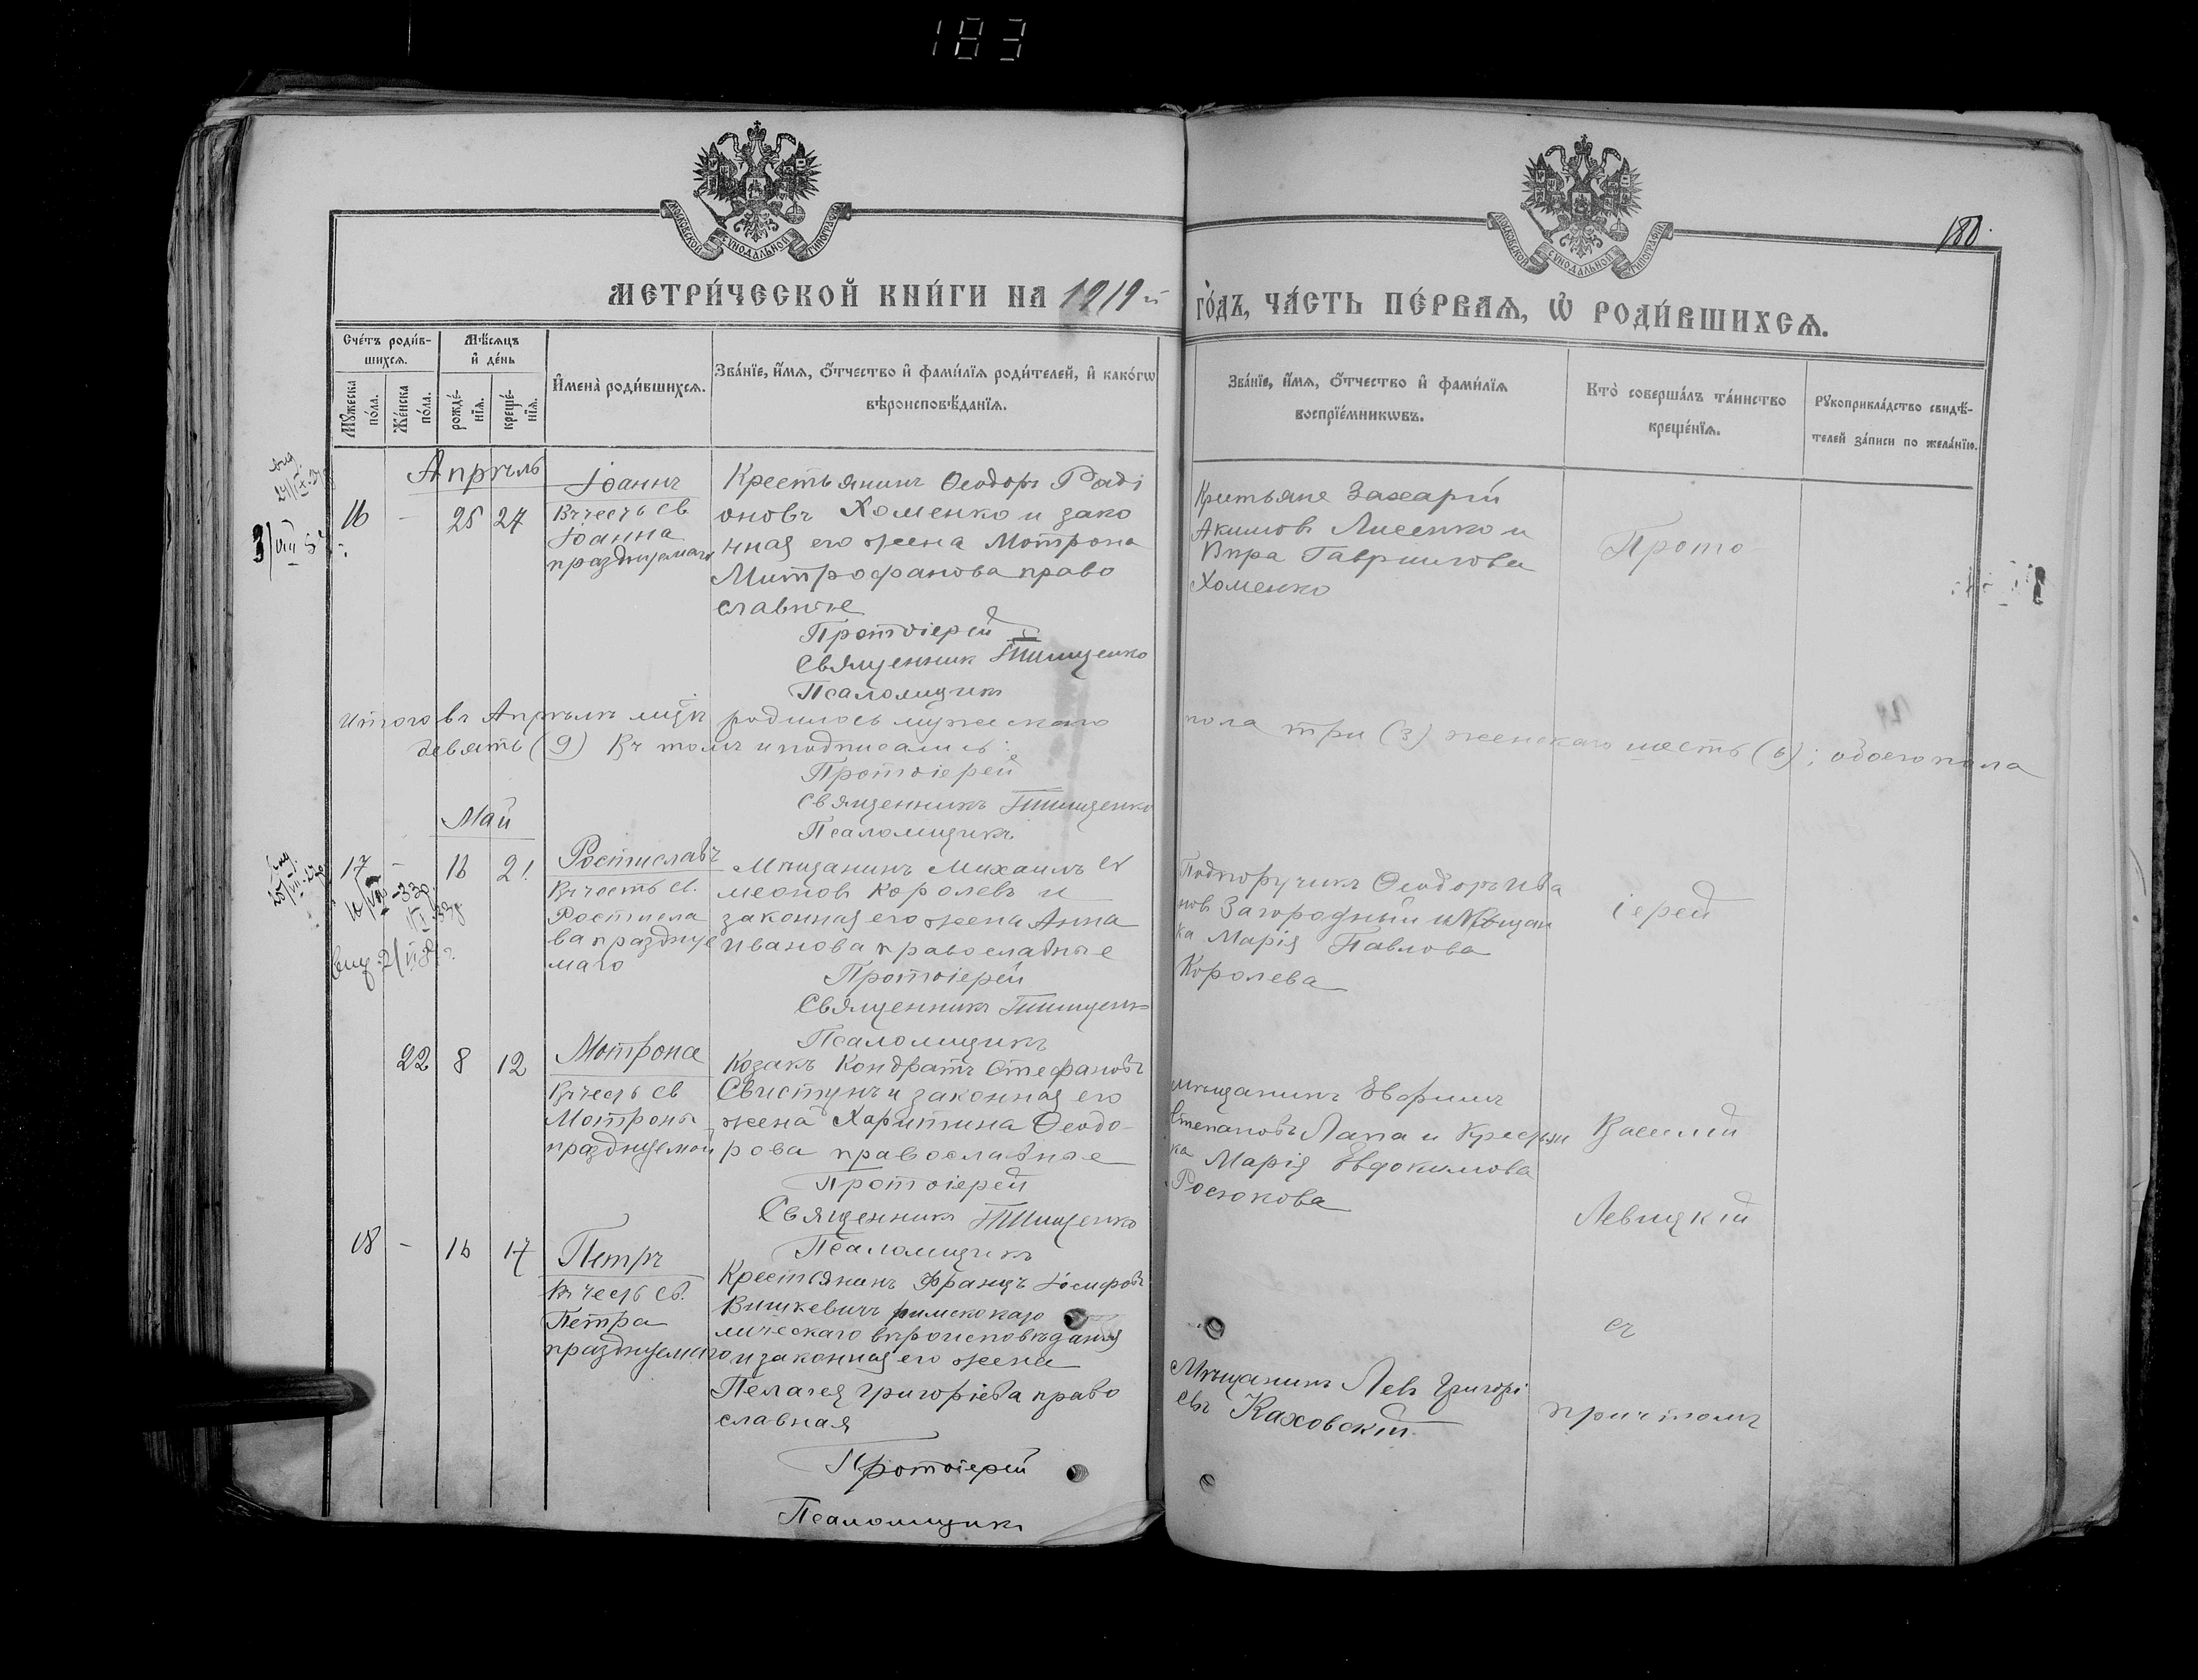 183
180.
МОСКОВСКОЙ СУНОДАЛЬНОЙ ТИПОГРАФІИ
МОСКОВСКОЙ СУНОДАЛЬНОЙ ТИПОГРАФІИ
МЕТРИ́ЧЕСКОЙ КНИ́ГИ НА 1919 й
ГО́ДЪ, ЧА́СТЬ ПЕ́РВАѦ, Ѡ҆ РОДИ́ВШИХСѦ.
Сче́тъ роди́в-
шихсѧ.
Мꙋжеска по́ла.
Же́нска по́ла.
Мѣ́сѧцъ
и҆ де́нь
рожде́-
нїѧ.
креще́-
нїѧ.
И҆мена̀ роди́вшихсѧ.
Зва́нїе, и҆́мѧ, ѻ҆́тчество и҆ фами́лїѧ роди́телей, и҆ како́гѡ
вѣроисповѣ́данїѧ.
Зва́нїе, и҆́мѧ, ѻ҆́тчество и҆ фами́лїѧ
воспрїе́мникѡвъ.
Кто̀ соверша́лъ та́инство
креще́нїѧ.
Рꙋкоприкла́дство свидѣ́-
телей за́писи по жела́нїю.
Апрѣль
16 - 25 27
Іоаннъ
Въ честь св
Іоанна
празднуемаго
Крестьянинъ Ѳеодоръ Раді
оновъ Хоменко и зако
нная его жена Мотрона
Митрофанова право
славные
Протоіерей
Священник Тимценко
Псаломщикъ
Крестьяне Захарій
Акимовъ Лисенко и
Вѣра Гаврилова
Хоменко
Прото-
Итого въ Апрѣлѣ мцѣ родилось мужескаго пола три (3) женскаго шесть (6); обоего пола
девять (9) Въ томъ и подписались:
Протоіерей
Священникъ Тимценко
Псаломщикъ
Май
17 - 16 21
Ростиславъ
Въ честь св.
Ростисла
ва празднуе
маго
Мѣщанинъ Михаилъ Си
меоновъ Королевъ и
законная его жена Анна
Иванова православные
Протоіерей
Священникъ Тимценко
Псаломщикъ
Подпоручикъ Ѳеодоръ Ива
новъ Загородный и Мѣщан
ка Марія Павлова
Королева
іерей
22 8 12
Мотрона
Въ честь св
Мотроны
празднуемой
Козакъ Кондратъ Стефановъ
Свистунъ и законная его
жена Харитина Ѳеодо-
рова православные
Протоіерей
Священникъ Тимценко
Псаломщикъ
Мѣщанинъ Евфимъ
Степановъ Лапа и Крестьян
ка Марія Евдокимова
Росюкова
Василій
Левицкій
18 - 16 17
Петръ
Въ честь св.
Петра
празднуемаго
Крестьянинъ Францъ Іосифовъ
Вишкевичъ римскокато
лическаго вѣроисповѣданія
и законная его жена
Пелагея Григоріева право
славная
Протоіерей
Псаломщикъ
Мѣщанинъ Левъ Григорі
евъ Каховскій
съ
причтомъ